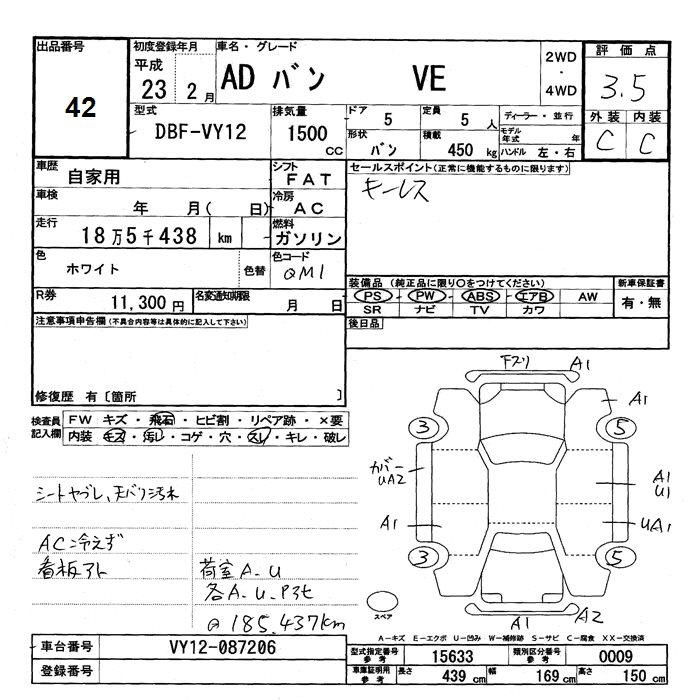 出品番号 初度登録年月 車名・グレード 2WD ・ 4WD 評価点
42 平成 23 2月 ADバン VE 3.5
型式 DBF-VY12 排気量 1500 CC ドア 5 定員 5 人 ディーラー・並行 外装 内装
形状 バン 積載 450 kg モデル年式 年 ハンドル 左・右 C C
車歴 自家用 シフト FAT セールスポイント(正常に機能するものに限ります)
車検 年 月( 日) 冷房 AC キーレス
走行 18万5千438 km 燃料 ガソリン
色 ホワイト 色替 色コード QM1
R券 11,300円 名変通知期限 月 日 装備品(純正品に限り○をつけてください) 新車保証書
PS PW ABS エアB AW 有・無
SR ナビ TV カワ
注意事項申告欄(不具合内容等は具体的に記入して下さい) 後日品
修復歴 有〔箇所 〕
検査員記入欄 FW キズ・飛石・ヒビ割・リペア跡・×要
内装 キズ・汚レ・コゲ・穴・スレ・キレ・破レ
シートヤブレ、天バリ汚れ
AC冷えず
看板アト 荷室A-U
各A-U
@185,437km
Fスリ A1
A1
3 5
カバー UA2 A1 U1
A1 UA1
3 5
スペア A1 A2
A-キズ E-エクボ U-凹み W-補修跡 S-サビ C-腐食 XX-交換済
車台番号 VY12-087206 型式指定番号 参考 15633 類別区分番号 参考 0009
登録番号 車庫証明用 参考 長さ 439 cm 幅 169 cm 高さ 150 cm